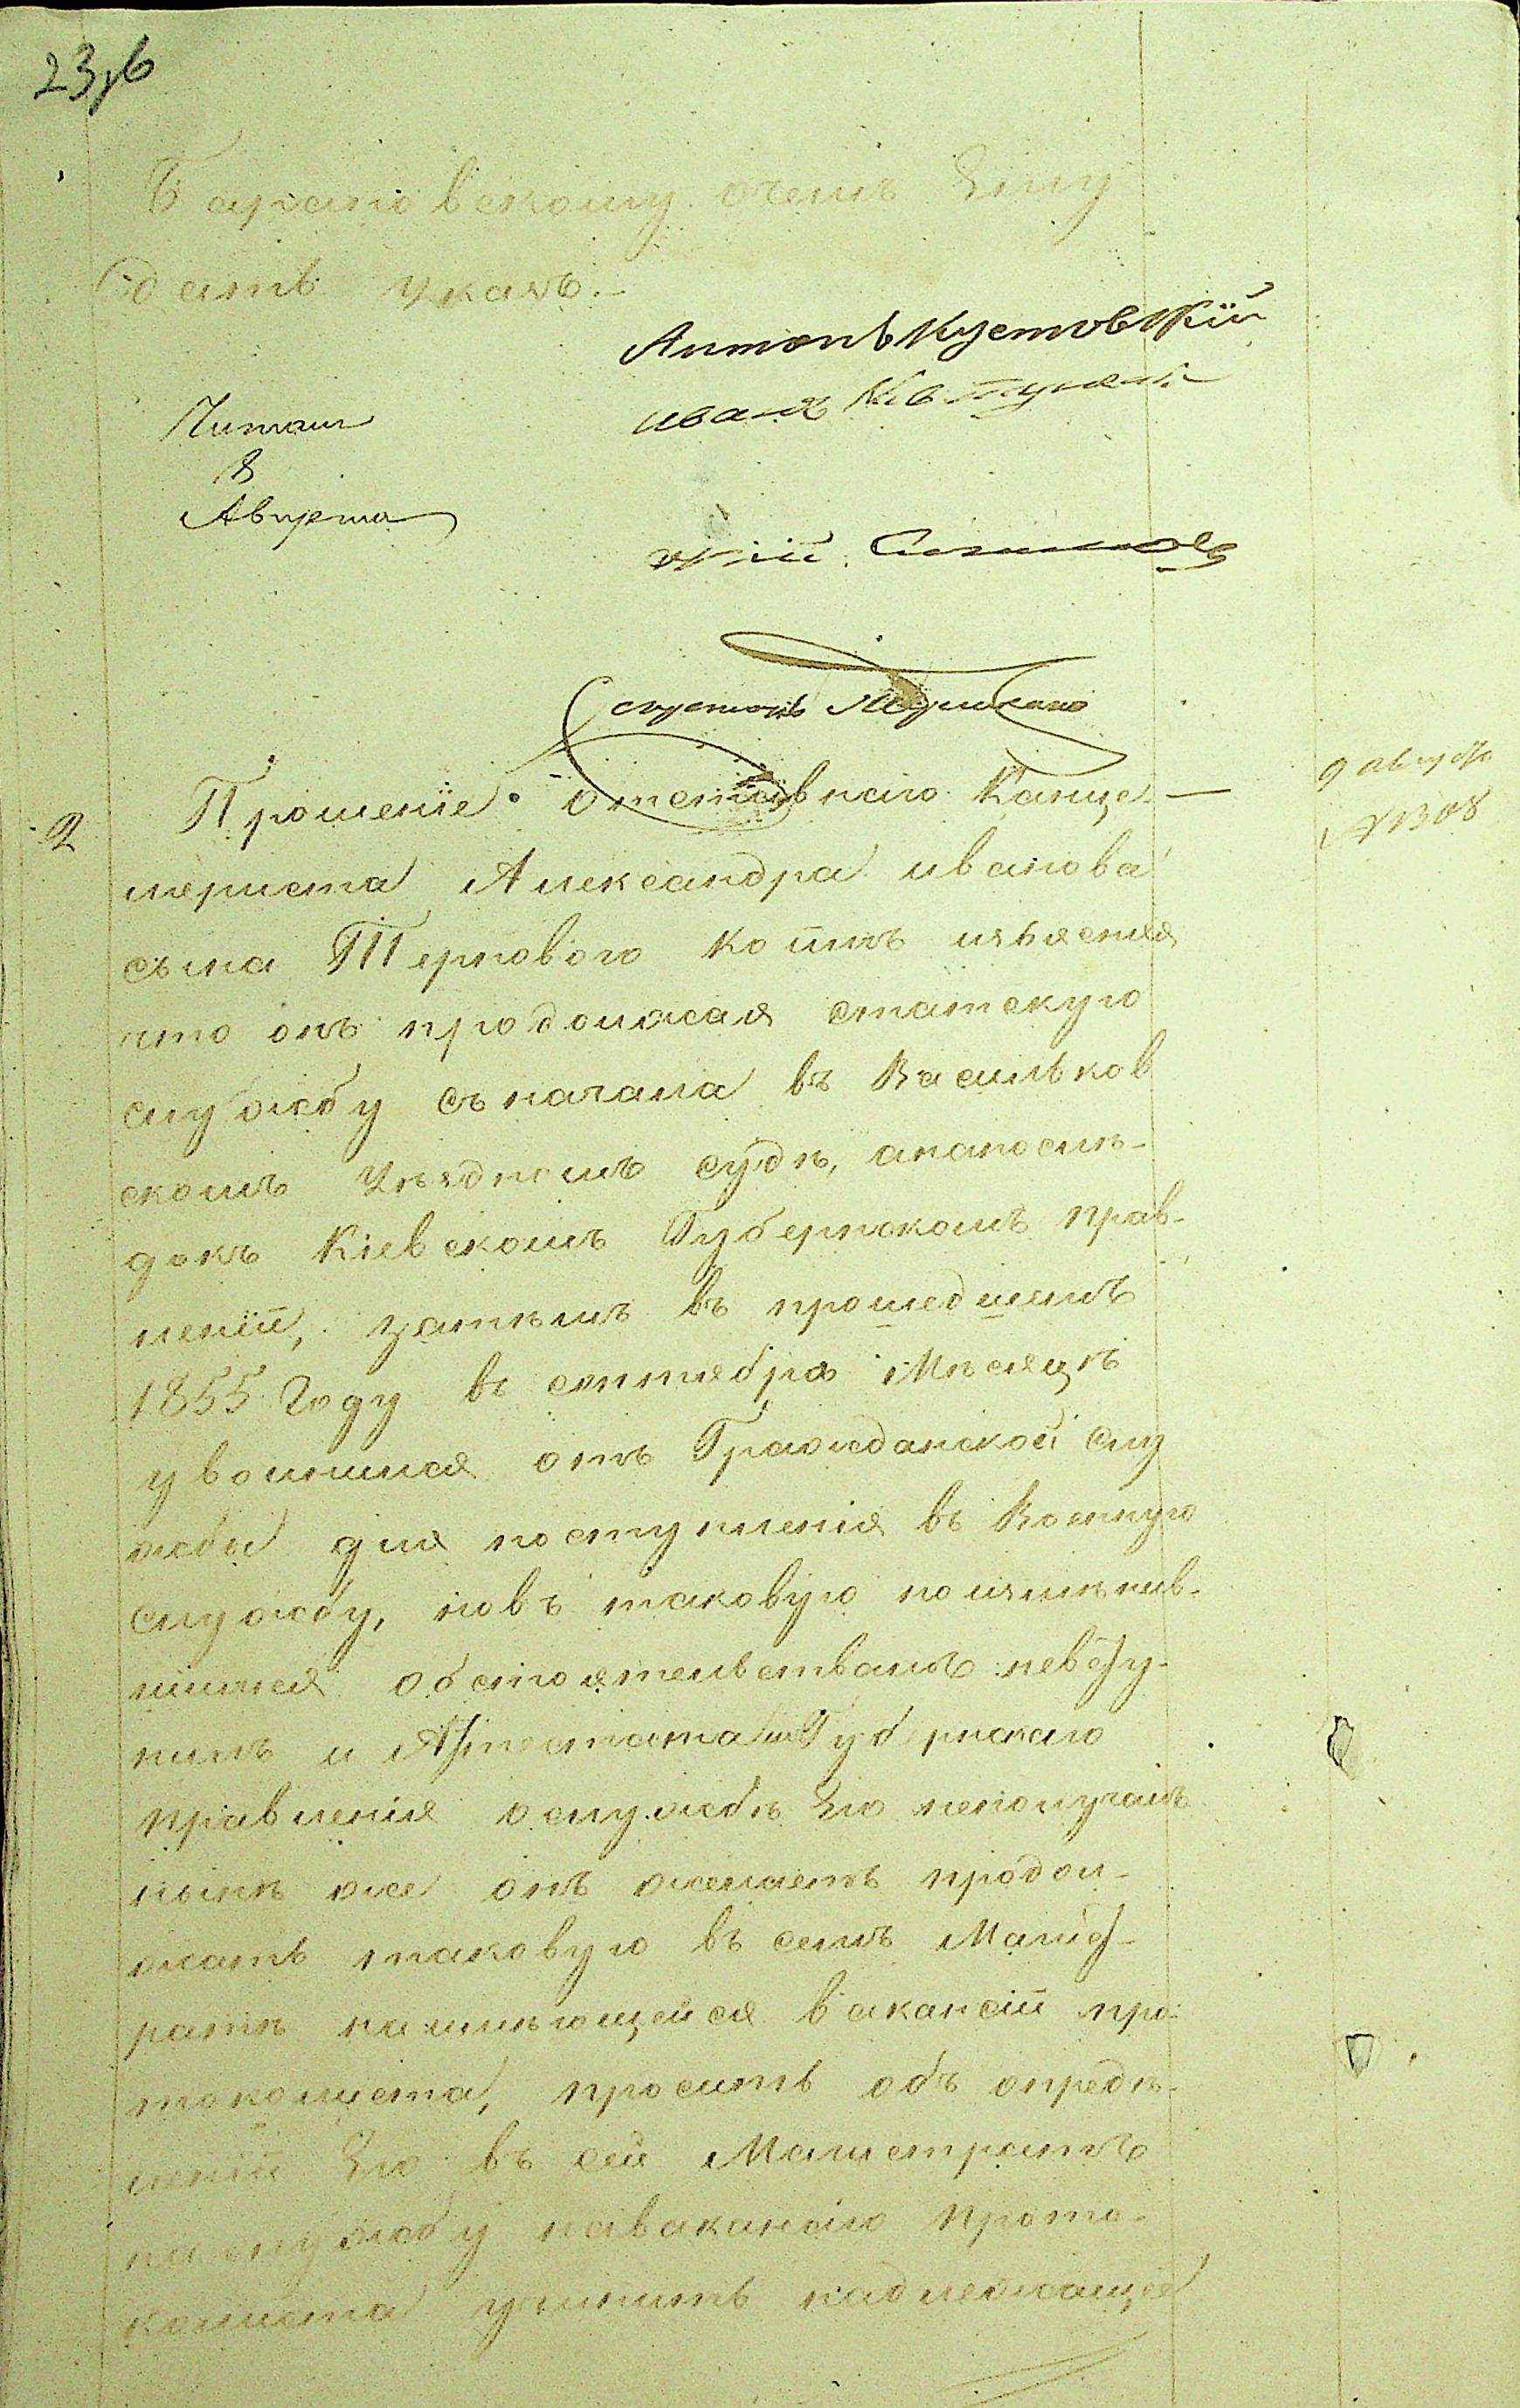 23об
Барановскому о чемъ Ему
дать указъ.
Антонъ Кустовскій
Иванъ
Читалъ
8
Августа
Прошеніе отставнаго Канце-
9 августа
2
№ 1308
леристa Александра иванова
сына Терноваго коимъ изъясняя
что онъ продолжая статскую
службу съначала въ Васильков
скомъ Уѣздномъ судѣ, анапослѣ-
докъ Кіевскомъ Губернскомъ прав-
леніи, затѣмъ въ прошедшемъ
1855 Году въ сентябрѣ Мѣсяцѣ
уволился отъ Гражданской слу
жбы для поступленія въ Военную
службу, новъ таковую поизмѣнив-
шимся обстоятельствамъ невсту-
пилъ и Аттестата изъ Губернскаго
правленія ослужбѣ Его неполучалъ
нынѣ же онъ желаетъ продол-
жать таковую въ семъ Магист-
ратѣ наимѣющейся вакансіи про-
токолиста, проситъ объ опредѣ-
леніи Его въ сей Магистратъ
наслужбу навакансію прото-
колиста учинить надлежащее